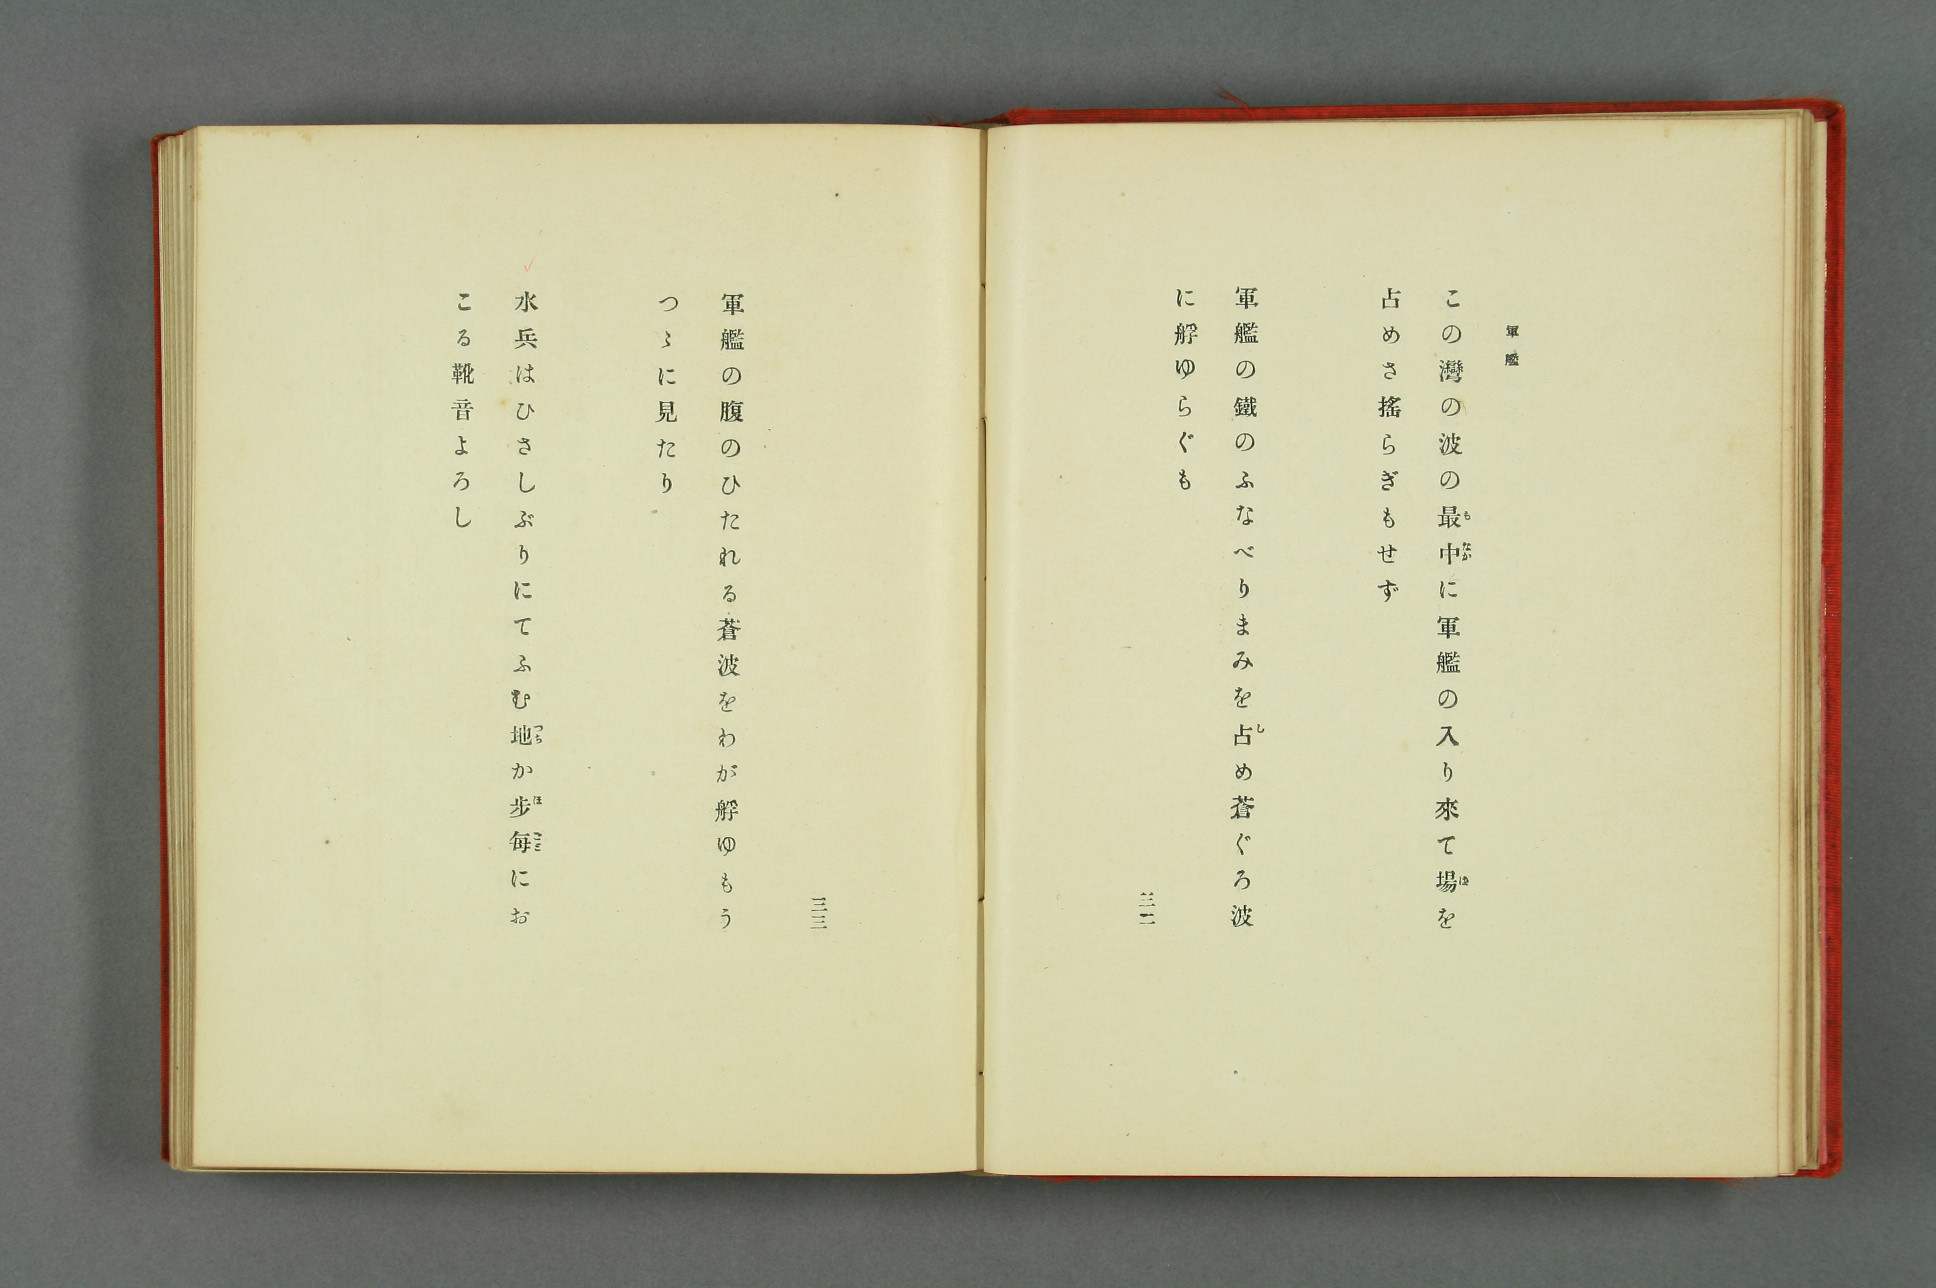 軍艦
この灣の波の最中に軍艦の入り來て場を
占めさ搖らぎもせず
軍艦の鐵のふなべりまみを占め蒼ぐろ波
に艀ゆらぐも
三二
軍艦の腹のひたれる蒼波をわが艀ゆもう
つゝに見たり
水兵はひさしぶりにてふむ地か歩毎にお
こる靴音よろし
三三